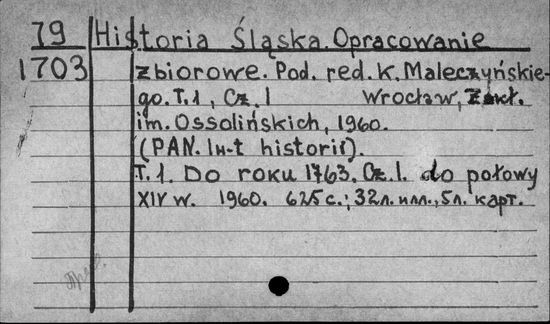 79 Historia Śląska. Opracowanie
1703 zbiorowe. Pod. red. K. Maleczyńskie-
go. T. 1, Cz. I Wrocław, Zakł.
im. Ossolińskich, 1960.
(PAN. In-t historii).
T. 1. Do roku 1763. Cz. I. do połowy
XIV w. 1960. 625 с.; 32 л. илл., 5 л. карт.